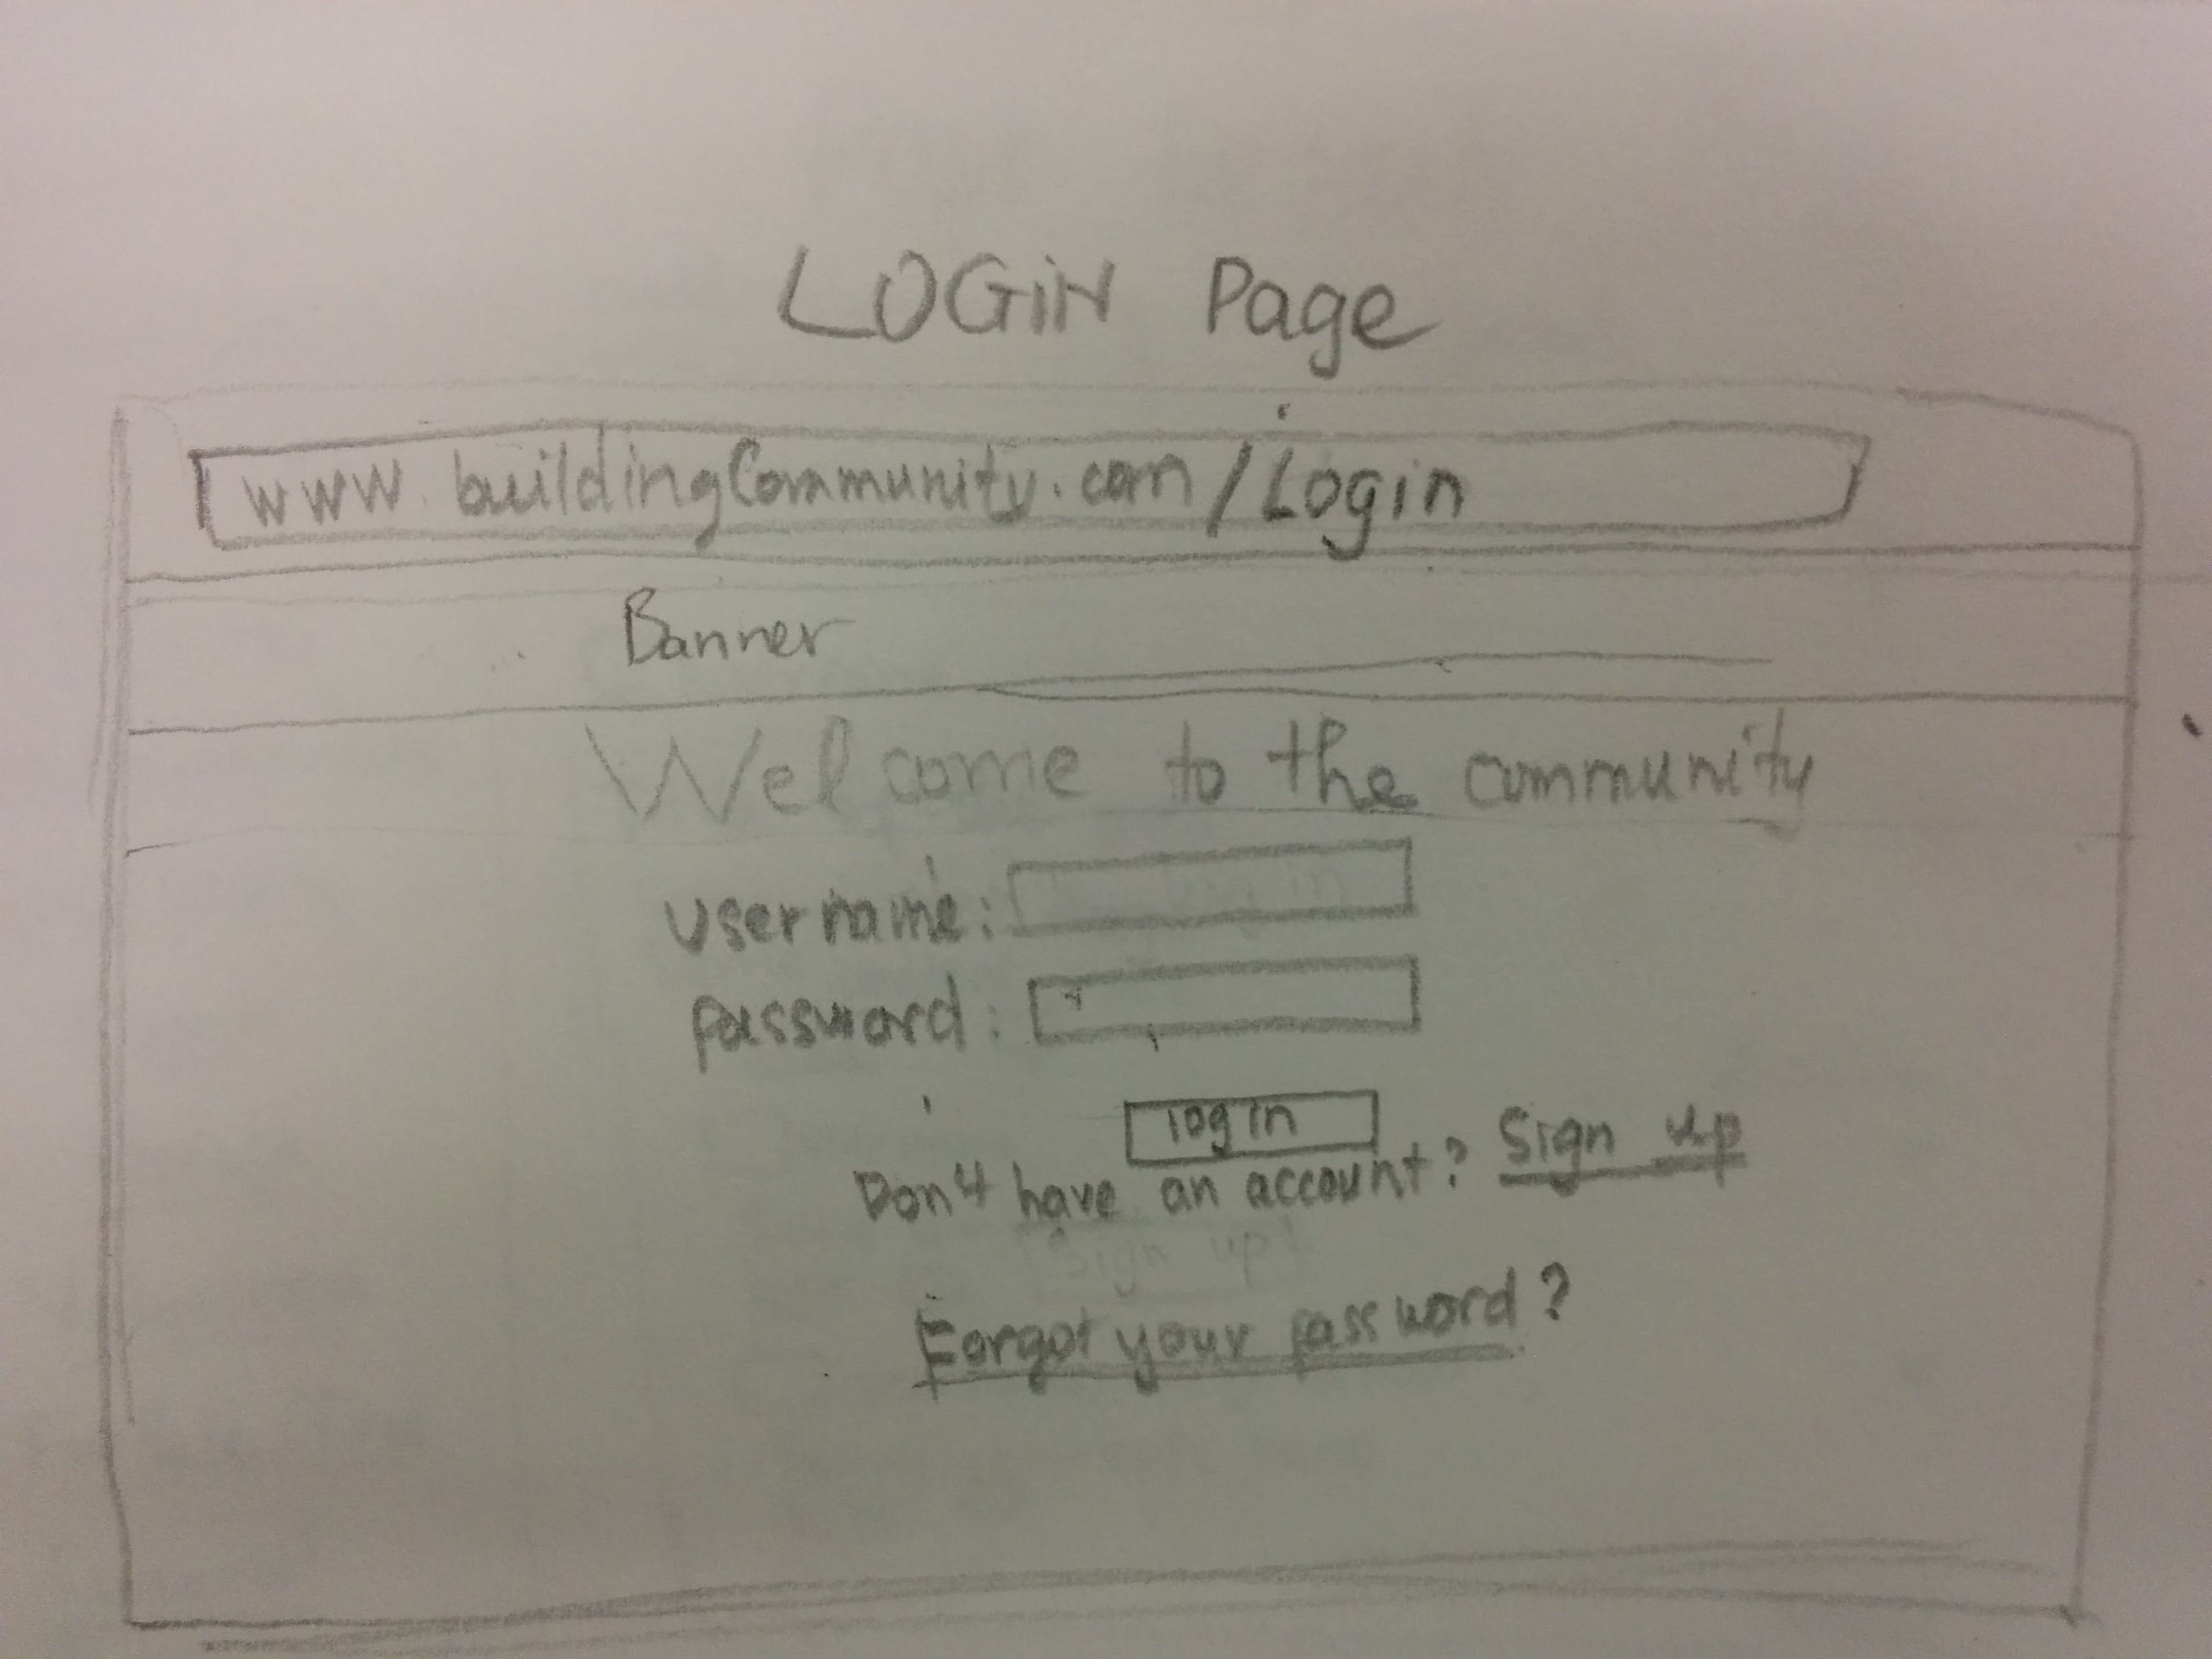 LOGIN Page
www.buildingCommunity.com/Login
Banner
Welcome to the community
username:
password:
login
Don't have an account? Sign up
Sign up
Forgot your password?